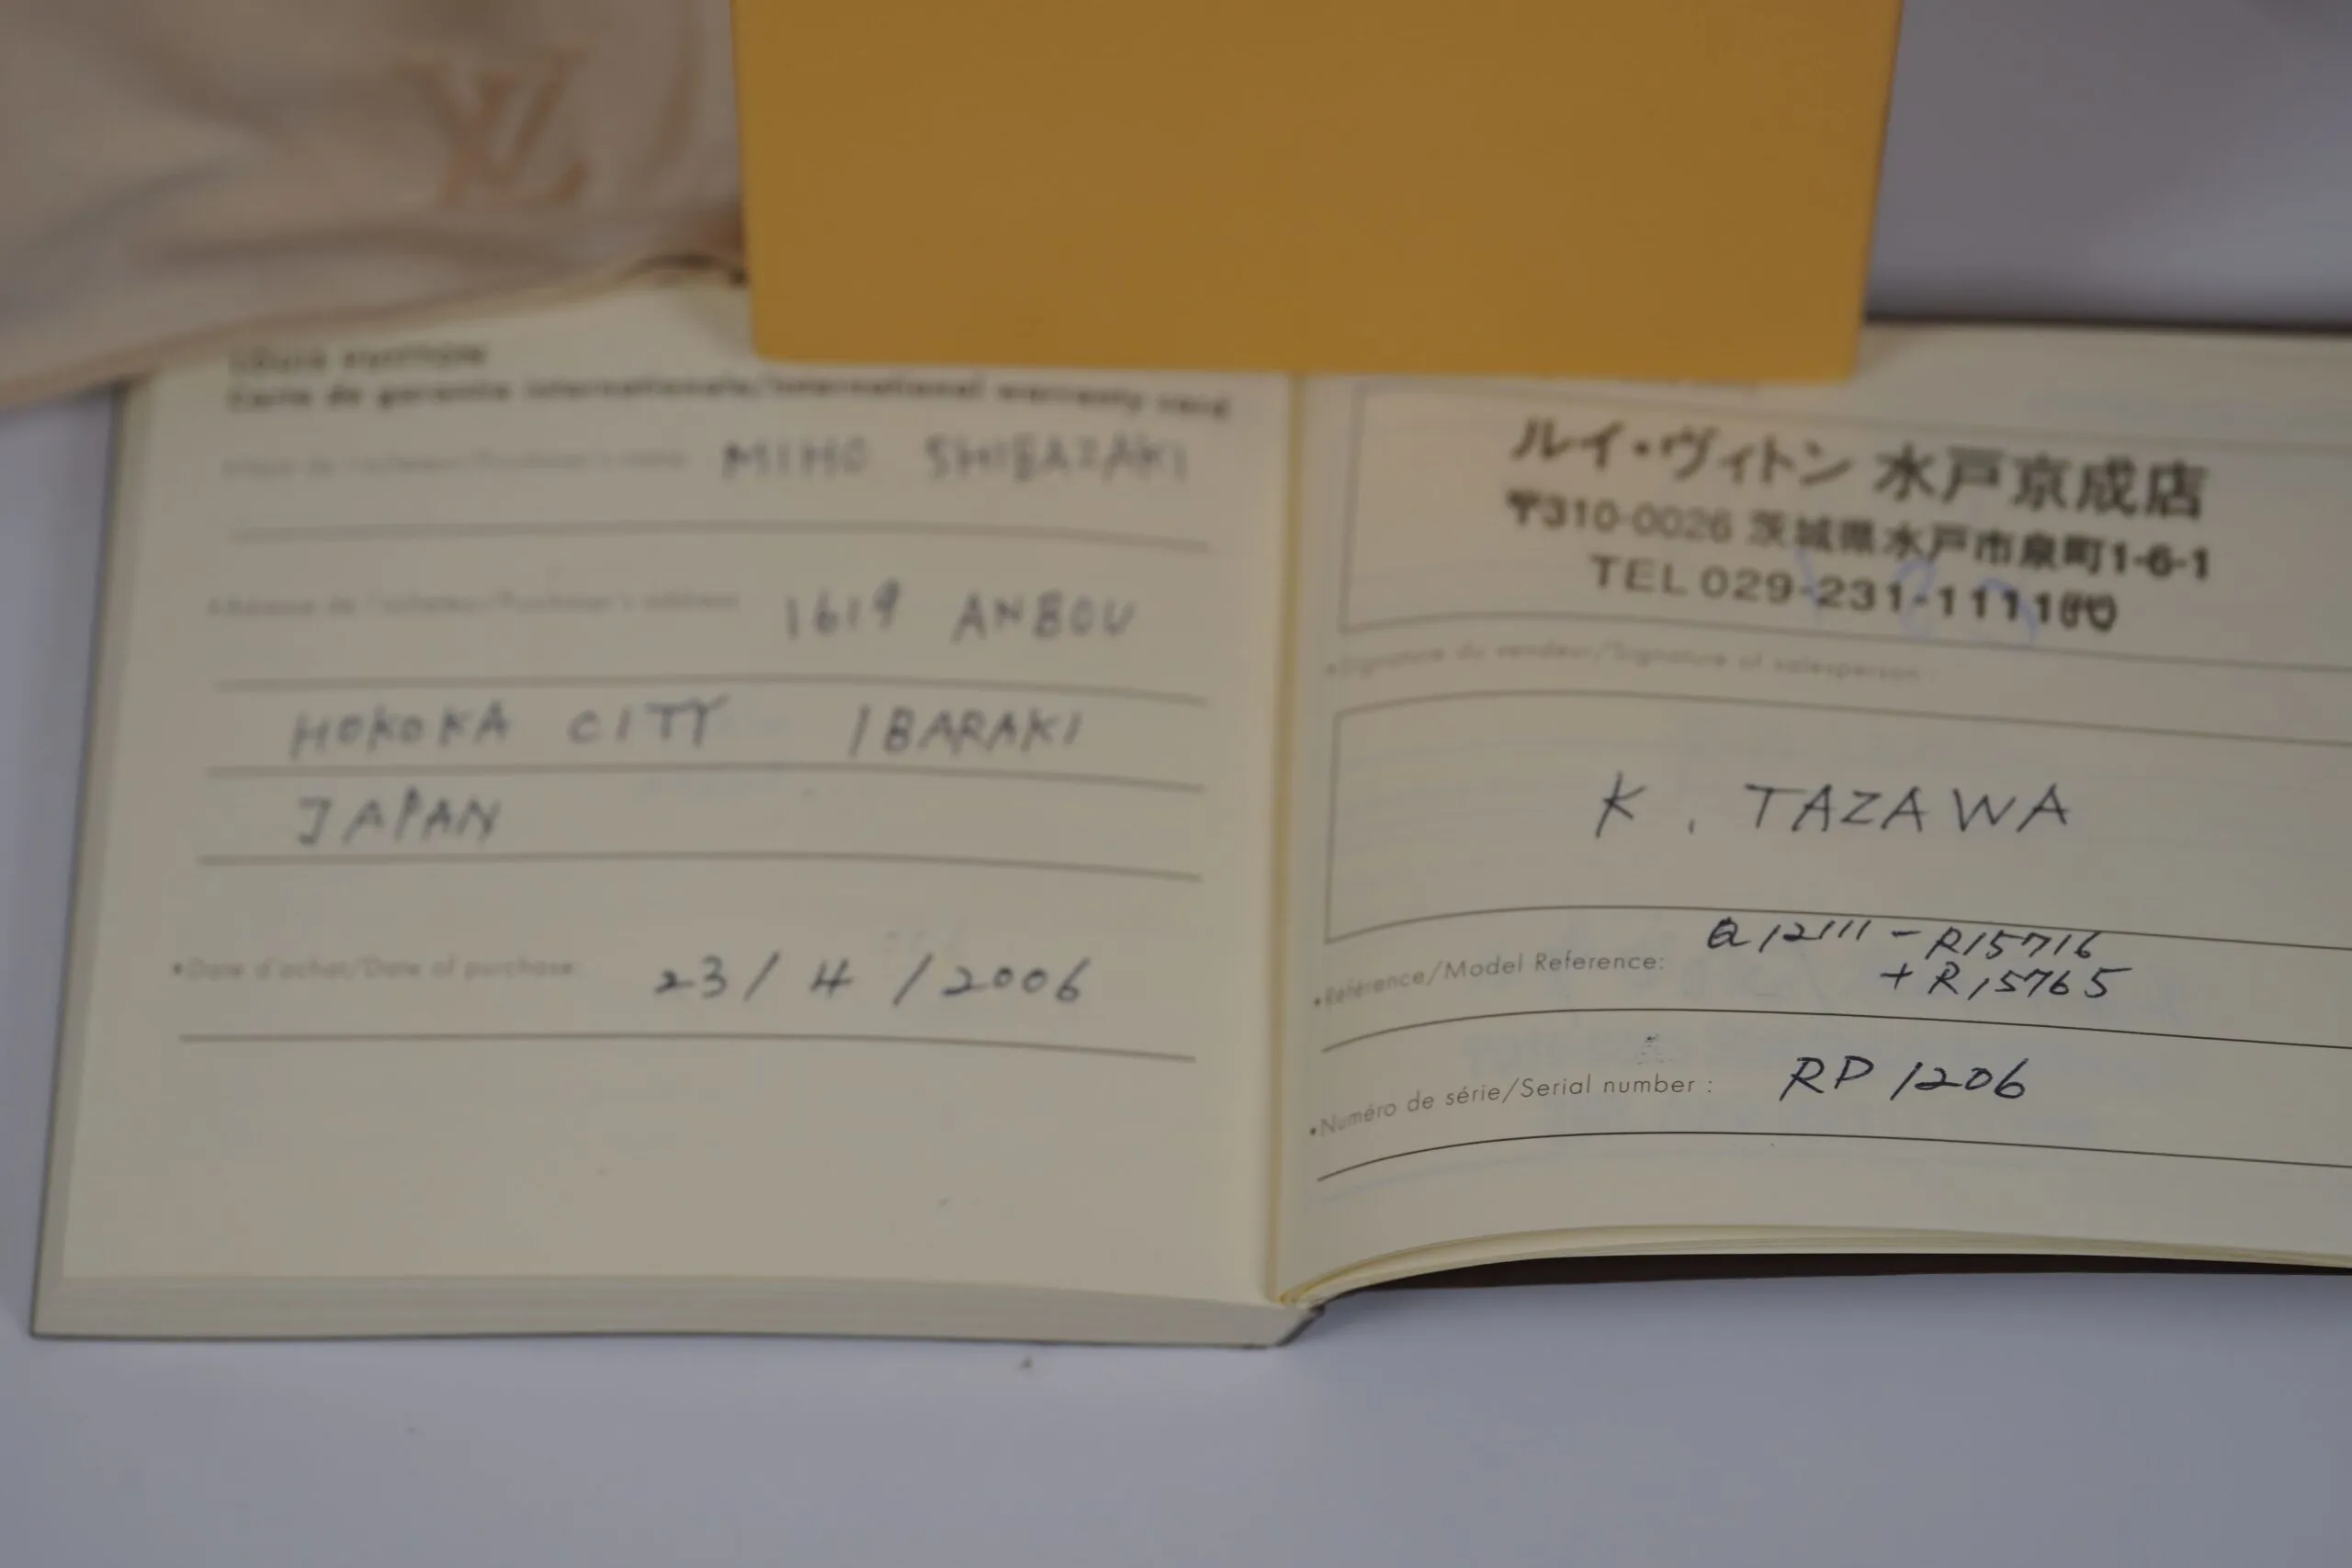 LV
LOUIS VUITTON
Carte de garantie internationale/International warranty card
MIHO SHIBAZAKI
•Adresse de l'acheteur/Purchaser's address: 1619 ANBOU
HOKOKA CITY IBARAKI
JAPAN
•Date d'achat/Date of purchase: 23/4/2006
ルイ・ヴィトン 水戸京成店
〒310-0026 茨城県水戸市泉町1-6-1
TEL 029-231-1111㈹
•Signature du vendeur/Signature of salesperson:
K. TAZAWA
•Référence/Model Reference: Q12111 - R15716
+ R15765
•Numéro de série/Serial number : RP 1206